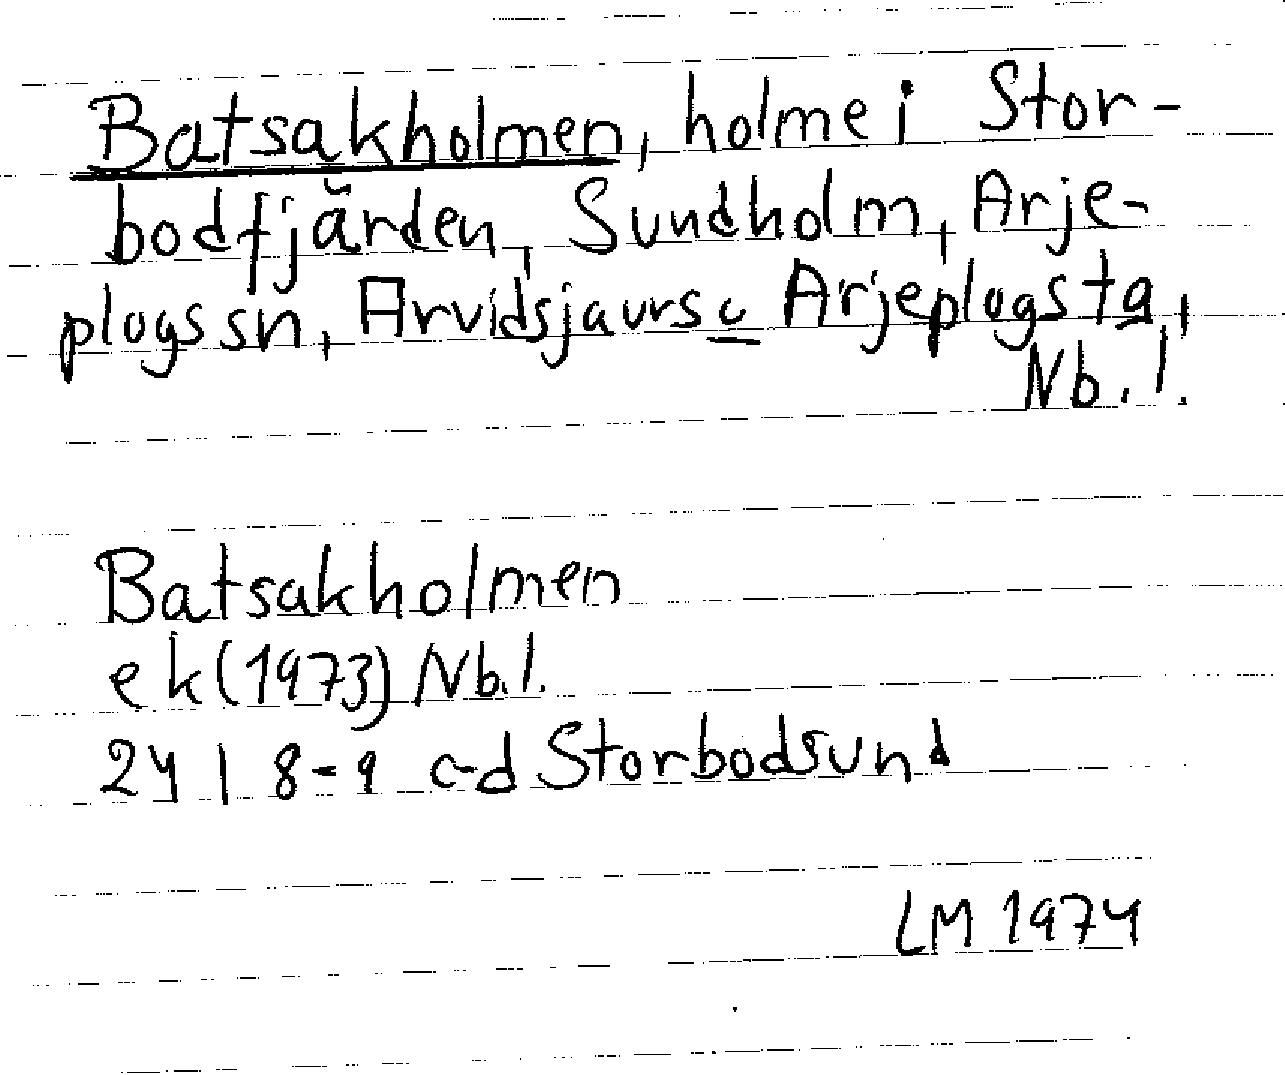 Batsakholmen, holme i Stor-
bodfjärden, Sundholm, Arje-
plogs sn, Arvidsjaurs o Arjeplogs ta,
Nb. l.
Batsakholmen
ek (1973) Nb. l.
24 I 8-9 c-d Storbodsund
LM 1974